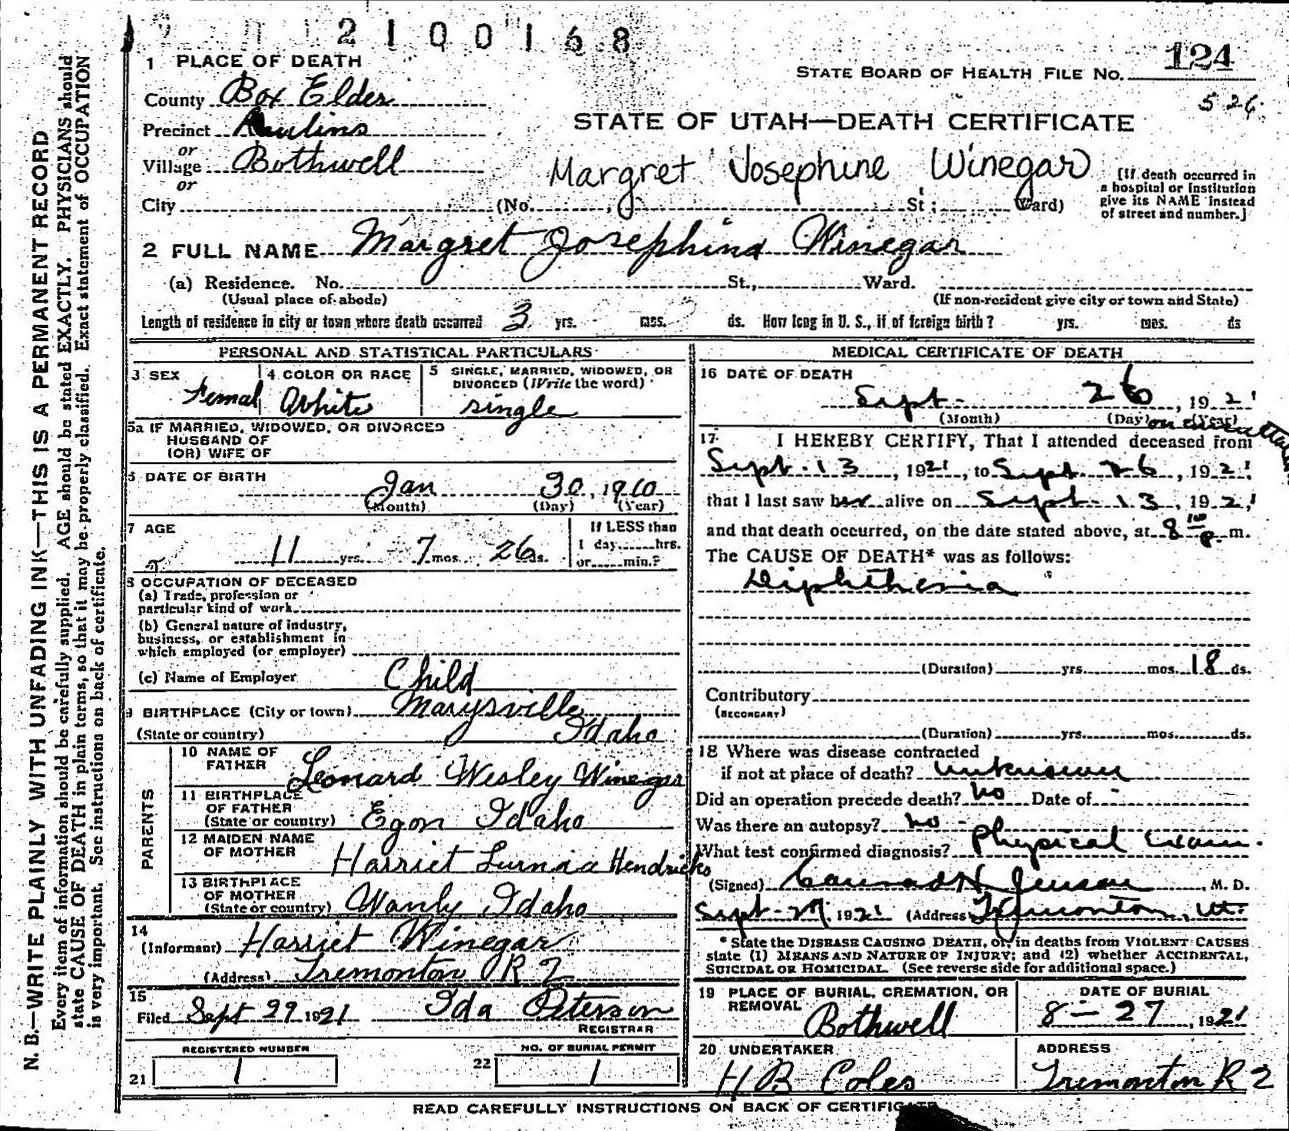 2100168
124
STATE BOARD OF HEALTH FILE NO.
526.
1 PLACE OF DEATH
County Box Elder
Precinct
STATE OF UTAH—DEATH CERTIFICATE
or
Village Bothwell
Margret Josephine Winegar
[If death occurred in a hospital or institution give its NAME instead of street and number.]
or
City (No. St; Ward)
2 FULL NAME Margret Josephine Winegar
(a) Residence. No. St., Ward.
(Usual place of abode) (If non-resident give city or town and State)
Length of residence in city or town where death occurred 3 yrs. mos. ds. How long in U. S., if of foreign birth? yrs. mos. ds
PERSONAL AND STATISTICAL PARTICULARS
3 SEX 4 COLOR OR RACE 5 SINGLE, MARRIED, WIDOWED, OR DIVORCED (Write the word)
Femal White single
5a IF MARRIED, WIDOWED, OR DIVORCED
HUSBAND OF
(OR) WIFE OF
6 DATE OF BIRTH
Jan 30, 1910
(Month) (Day) (Year)
7 AGE
11 yrs. 7 mos. 26 ds.
If LESS than
1 day hrs.
or min.?
8 OCCUPATION OF DECEASED
(a) Trade, profession or
particular kind of work
(b) General nature of industry,
business, or establishment in
which employed (or employer)
(c) Name of Employer Child
9 BIRTHPLACE (City or town) Marysville
(State or country) Idaho
PARENTS
10 NAME OF FATHER Leonard Wesley Winegar
11 BIRTHPLACE OF FATHER
(State or country) Egon Idaho
12 MAIDEN NAME OF MOTHER Harriet Hendricks
13 BIRTHPLACE OF MOTHER
(State or country) Idaho
14
(Informant) Harriet Winegar
(Address) Tremonton R 2
15
Filed Sept 29 1921 Ida Peterson
REGISTRAR
REGISTERED NUMBER NO. OF BURIAL PERMIT
21 1 22 1
MEDICAL CERTIFICATE OF DEATH
16 DATE OF DEATH
Sept. 26, 1921
(Month) (Day) (Year)
17 I HEREBY CERTIFY, That I attended deceased from
Sept. 13, 1921, to Sept. 26, 1921
that I last saw her alive on Sept. 13, 1921
and that death occurred, on the date stated above, at 8 10 p m.
The CAUSE OF DEATH* was as follows:
Diphtheria
(Duration) yrs. mos. 18 ds.
Contributory
(SECONDARY)
(Duration) yrs. mos. ds.
18 Where was disease contracted
if not at place of death? unknown
Did an operation precede death? No Date of -
Was there an autopsy? no -
What test confirmed diagnosis? Physical Exam.
(Signed) Jensen, M. D.
Sept-27, 1921 (Address) Tremonton, Ut.
* State the DISEASE CAUSING DEATH, or, in deaths from VIOLENT CAUSES
state (1) MEANS AND NATURE OF INJURY; and (2) whether ACCIDENTAL,
SUICIDAL OR HOMICIDAL. (See reverse side for additional space.)
19 PLACE OF BURIAL, CREMATION, OR REMOVAL DATE OF BURIAL
Bothwell 8-27, 1921
20 UNDERTAKER ADDRESS
H B Coles Tremonton R 2
READ CAREFULLY INSTRUCTIONS ON BACK OF CERTIFICATE
N. B.—WRITE PLAINLY WITH UNFADING INK—THIS IS A PERMANENT RECORD
Every item of information should be carefully supplied. AGE should be stated EXACTLY. PHYSICIANS should
state CAUSE OF DEATH in plain terms, so that it may be properly classified. Exact statement of OCCUPATION
is very important. See instructions on back of certificate.